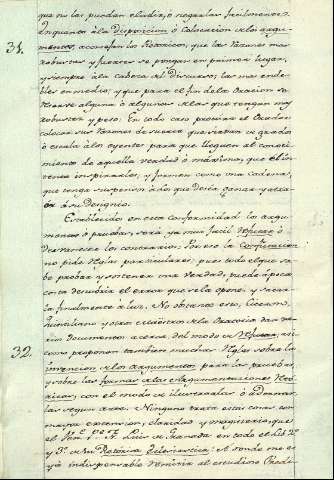 que no las puedan eludir, o negarlas facilmente.
En quanto à la disposicion ò colocacion de los argu-
31. mentos, aconsejan los Retoricos, que las razones mas
robustas y fuertes se pongan en primer lugar,
y siempre à la cabeza del discurso; las mas ende-
bles en medio; y que para el fin de la Oracion se
reserve alguna ò algunas de las que tengan mas
robustez y peso. En todo caso procurar el Orador
colocar sus razones de suerte que sirvan de grada
ò escala à los oyentes para que lleguen al conoci-
miento de aquella verdad ò máxima, que él in-
tenta inspirarles, y formen como una cadena,
que tenga suspensos à los que desea ganar y
à su designio.
Establecido en esta conformidad los argu-
mentos ò pruebas, será ya mui facil refutar ò
desvanecer los contrarios. Por eso la Confutacion
no pide reglas particulares; pues todo el que sa-
be probar y sostener una verdad, puede à poca
costa descubrir el error que se la opone, y sacar-
la finalmente à luz. No obstante eso, Ciceron,
Quintiliano y otros Maestros de la Oratoria dan va-
rios documentos acerca del modo de refutar, asi
32. como proponen tambien muchas reglas sobre la
invencion de los argumentos para las pruebas
y sobre las formas de las Argumentaciones Reto-
ricas, con el modo de ilustrarlas ò adornar-
las segun arte. Ninguno trata estas cosas con
mayor extension, claridad y magisterio, que
el Fr. Luis de Granada en todo el Lib. 2º
y 3º de su Retorica Eclesiastica: A donde me es
ya indispensable remitir al estudioso Predi-